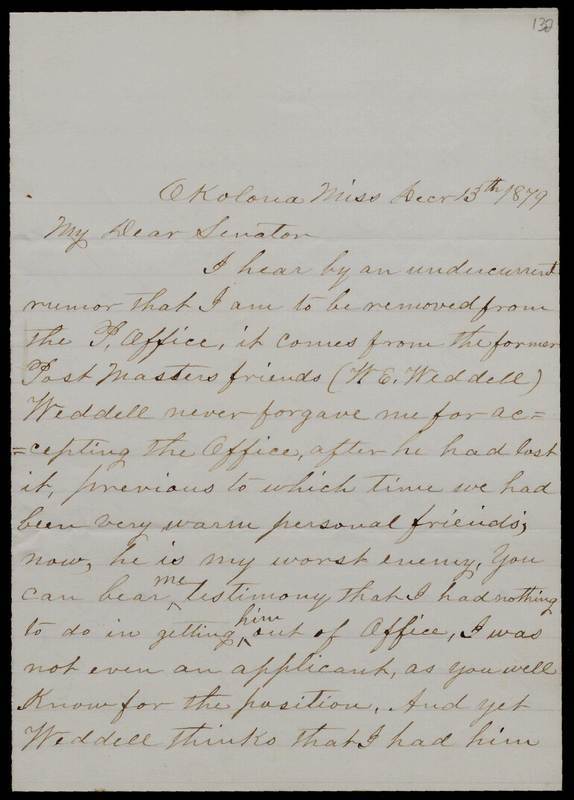 132
Okolona Miss Decr 13th 1879
My Dear Senator
I hear by an undercurrent
rumor that I am to be removed from
the P, Office, it comes from the former
Post Masters friends (W E. Weddell)
Weddell never forgave me for ac=
=cepting the Office, after he had lost
it, previous to which time we had
been very warm personal friends;
now, he is my worst enemy, You
can bear me testimony that I had nothing
to do in getting him out of Office, I was
not even an applicant, as you well
Know for the position, And yet
Weddell thinks that I had him